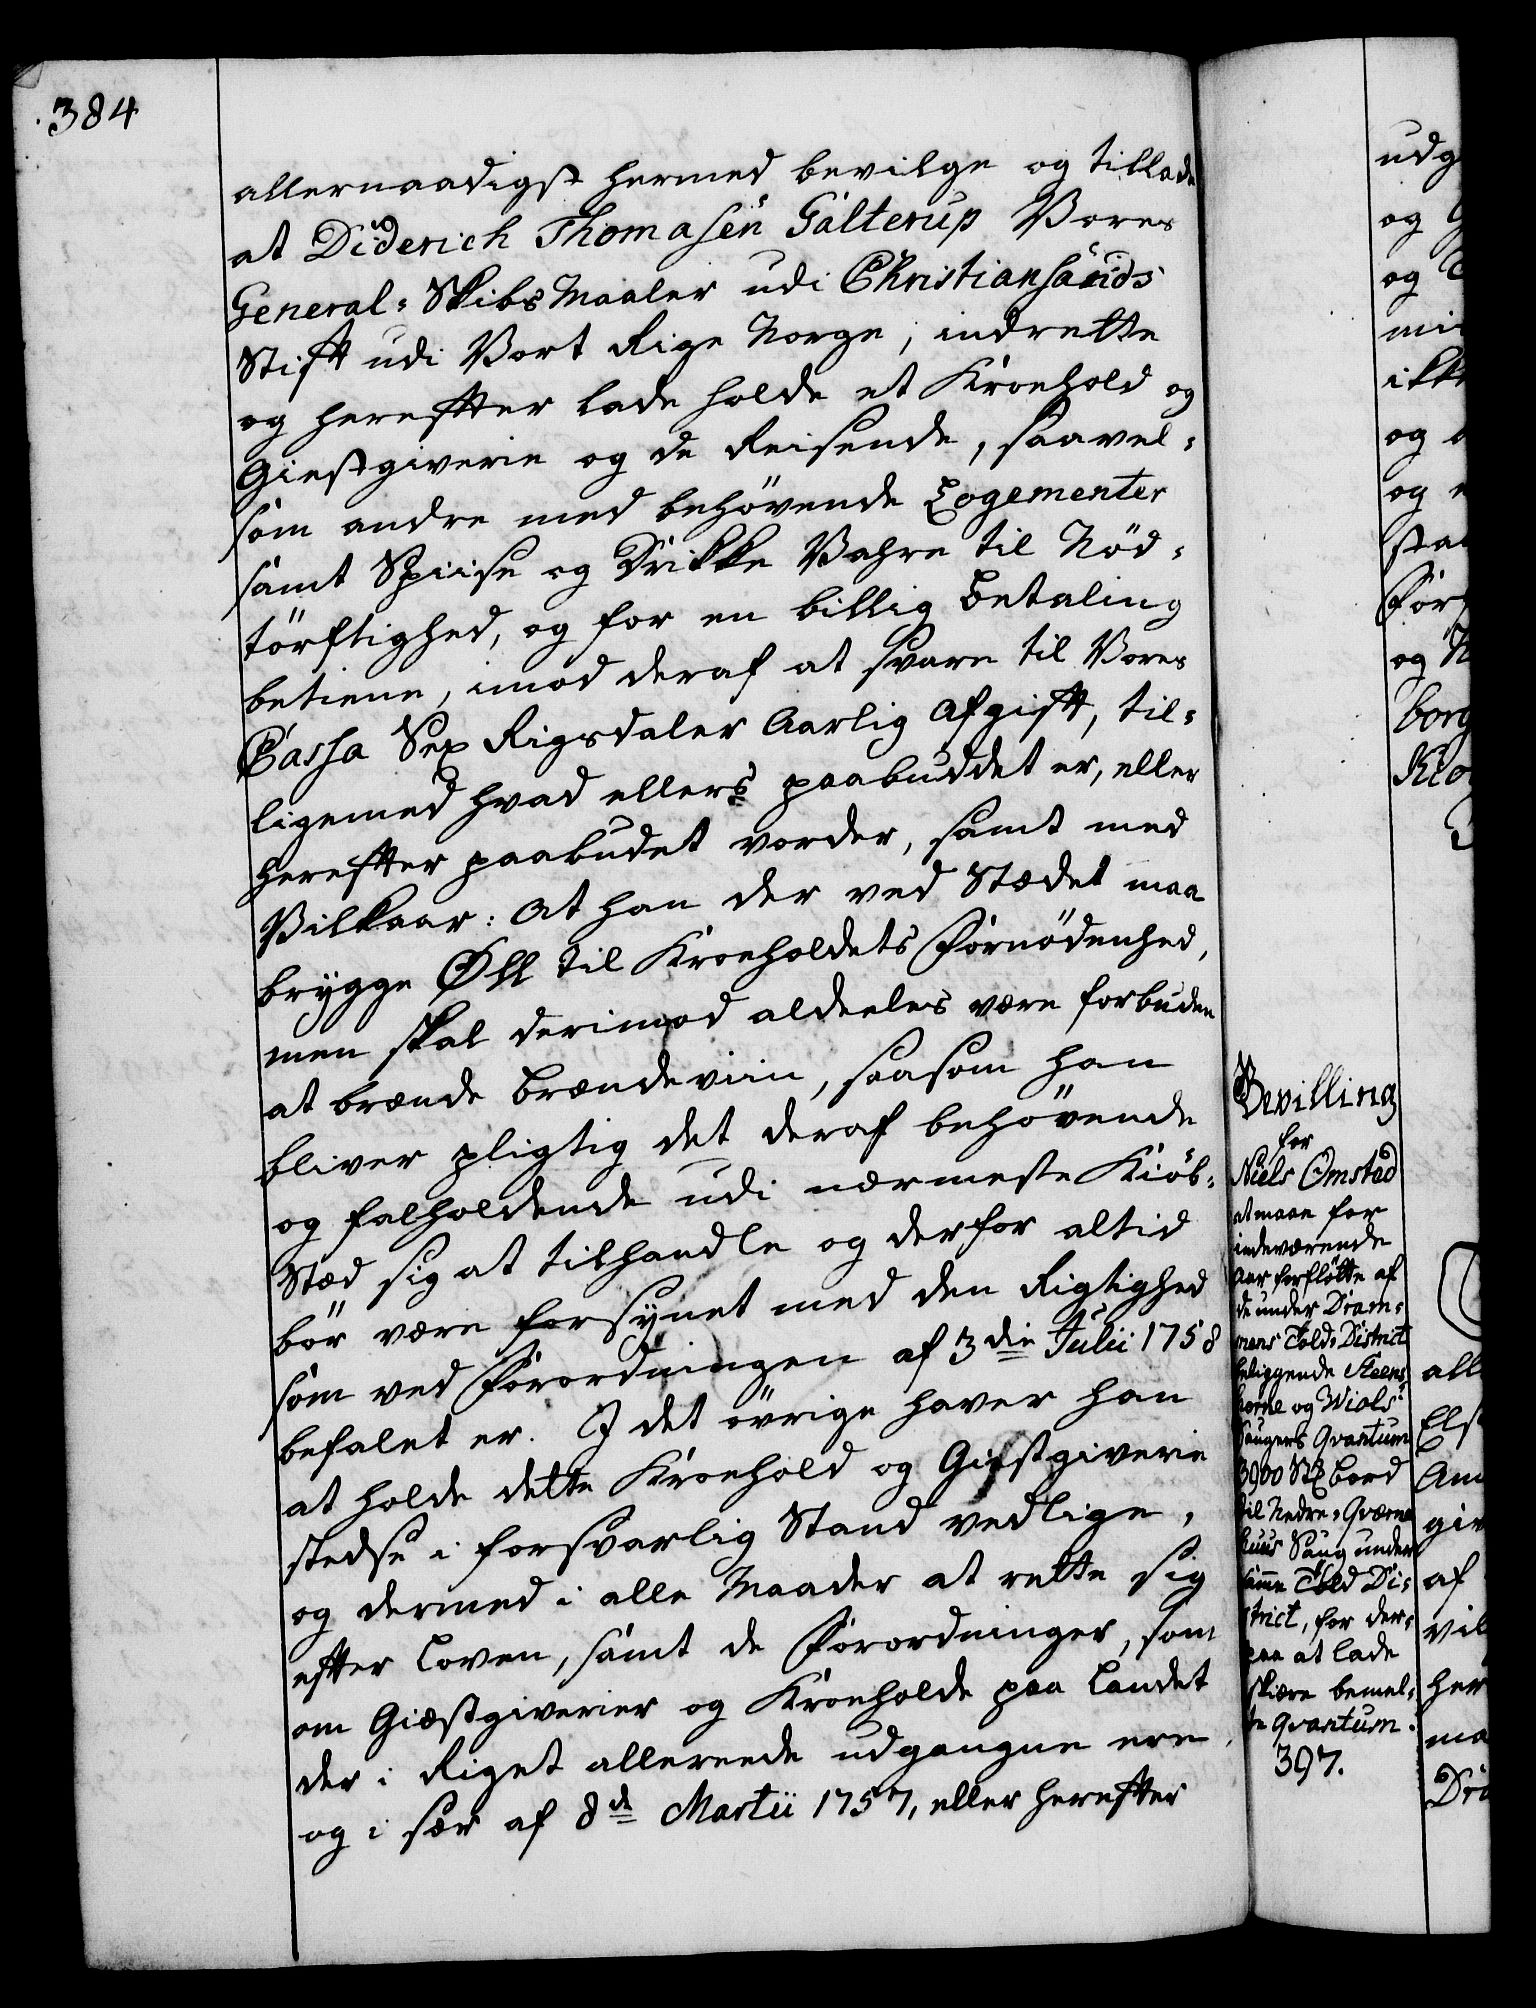 384
allernaadigst hermed bevilge og tillade
at Diderich Thomasen Galterup Vores
General-Skibs Maaler udi Christiansands
Stift udi Vort Rige Norge, indrette
og herefter lade holde et Kroehold og
Giestgiverie og de Reisende, saavel-
som andre med behövende Logementer
samt Spiise og Drikke Vahre til Nöd-
törftighed, og for en billig betaling
betiene, imod deraf at svare til Vores
Cassa Sex Rigsdaler Aarlig Afgift, til-
ligemed hvad ellers paabuddet er, eller
herefter paabudet vorder, samt med
Vilkaar: At han der ved Stædet maa
brygge Öll til Kroeholdets Fornödenhed,
men skal derimod aldeeles være forbuden
at brænde Brændeviin, saasom han
bliver pligtig det deraf behövende
og falholdende udi nærmeste Kiöb-
Stæd sig at tilhandle og derfor altid
bör være forsÿnet med den Rigtighed
som ved Forordningen af 3die Julii 1758
befalet er. I det övrige haver han
at holde dette Kroehold og Giestgiverie
stedse i forsvarlig Stand vedlige,
og dermed i alle Maader at rette sig
efter Loven, samt de Forordninger, som
om Giæstgiverier og Kroeholde paa Landet
der i Riget allereede udgangne ere
og i sær af 8de Martii 1757, eller herefter
Bevilling
for
Niels Omstad
at maae for
indeværende
Aar forflötte af
de under Dram-
mens Told-District
beliggende Steens-
horne og Wiols
Saugers Qvantum
3900 Stk Bord
til Nedre-Qværne
huus Saug under
samme Told Di-
strict, for der-
paa at lade
skiære bemel-
te Qvantum.
397.
udg
og
og
mi
ikk
og
og
sta
For
og
borg
Klo
all
Els
Am
giv
af
vil
her
ma
Dra